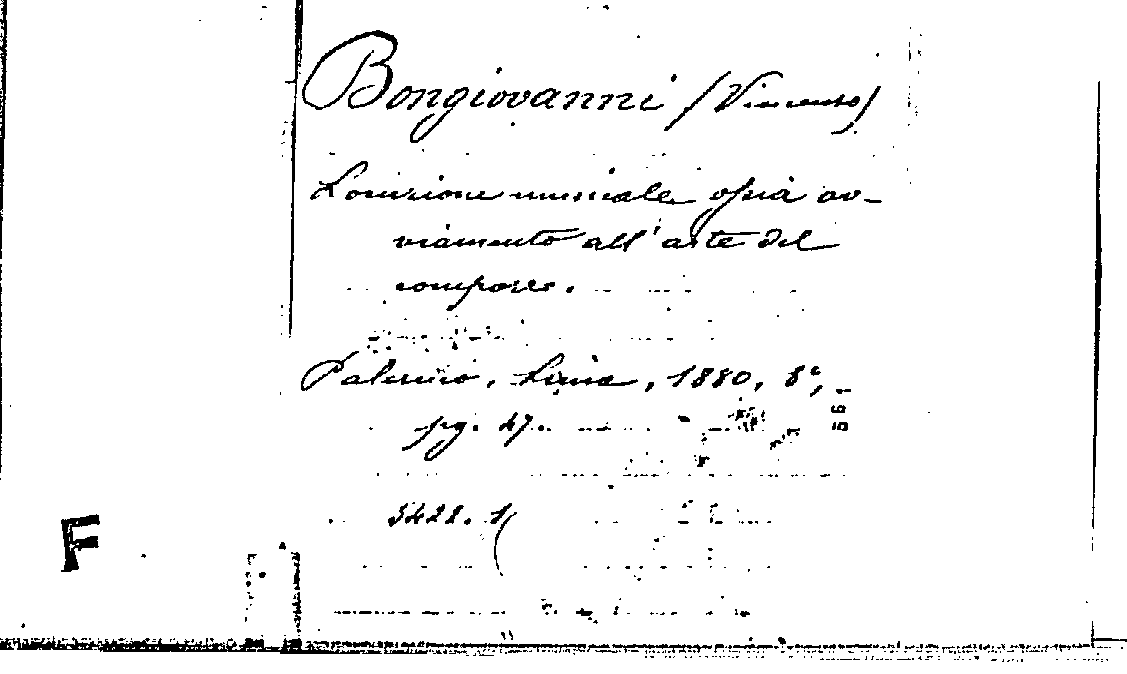 Bongiovanni (Vincenzo)
Locuzione musicale ossia av-
viamento all'arte del
comporre.
Palermo, Lima, 1880, 8°,
pg. 47.
5428. 1
F